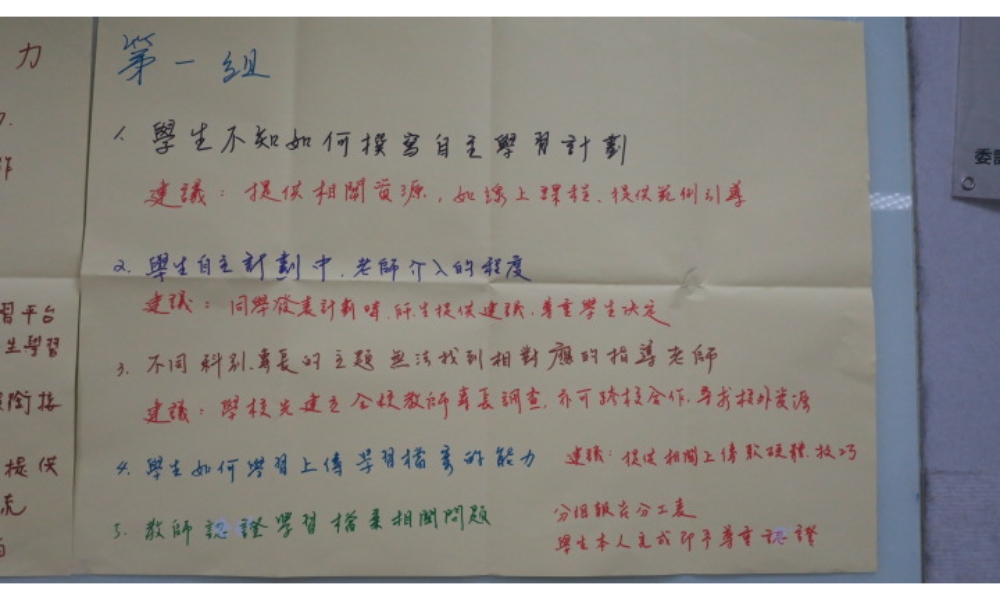 力
第一組
1. 學生不知如何撰寫自主學習計劃
建議：提供相關資源，如線上課程、提供範例引導
2. 學生自主計劃中，老師介入的程度
建議：同學發表計劃時，師生提供建議，尊重學生決定
3. 不同科別、專長的主題無法找到相對應的指導老師
建議：學校先建立全校教師專長調查，亦可跨校合作，尋求校外資源
4. 學生如何學習上傳學習檔案的能力
建議：提供相關上傳軟硬體、技巧
5. 教師認證學習檔案相關問題
分組報告分工表
學生本人完成即予尊重認證
習平台
生學習
銜接
提供
流
委